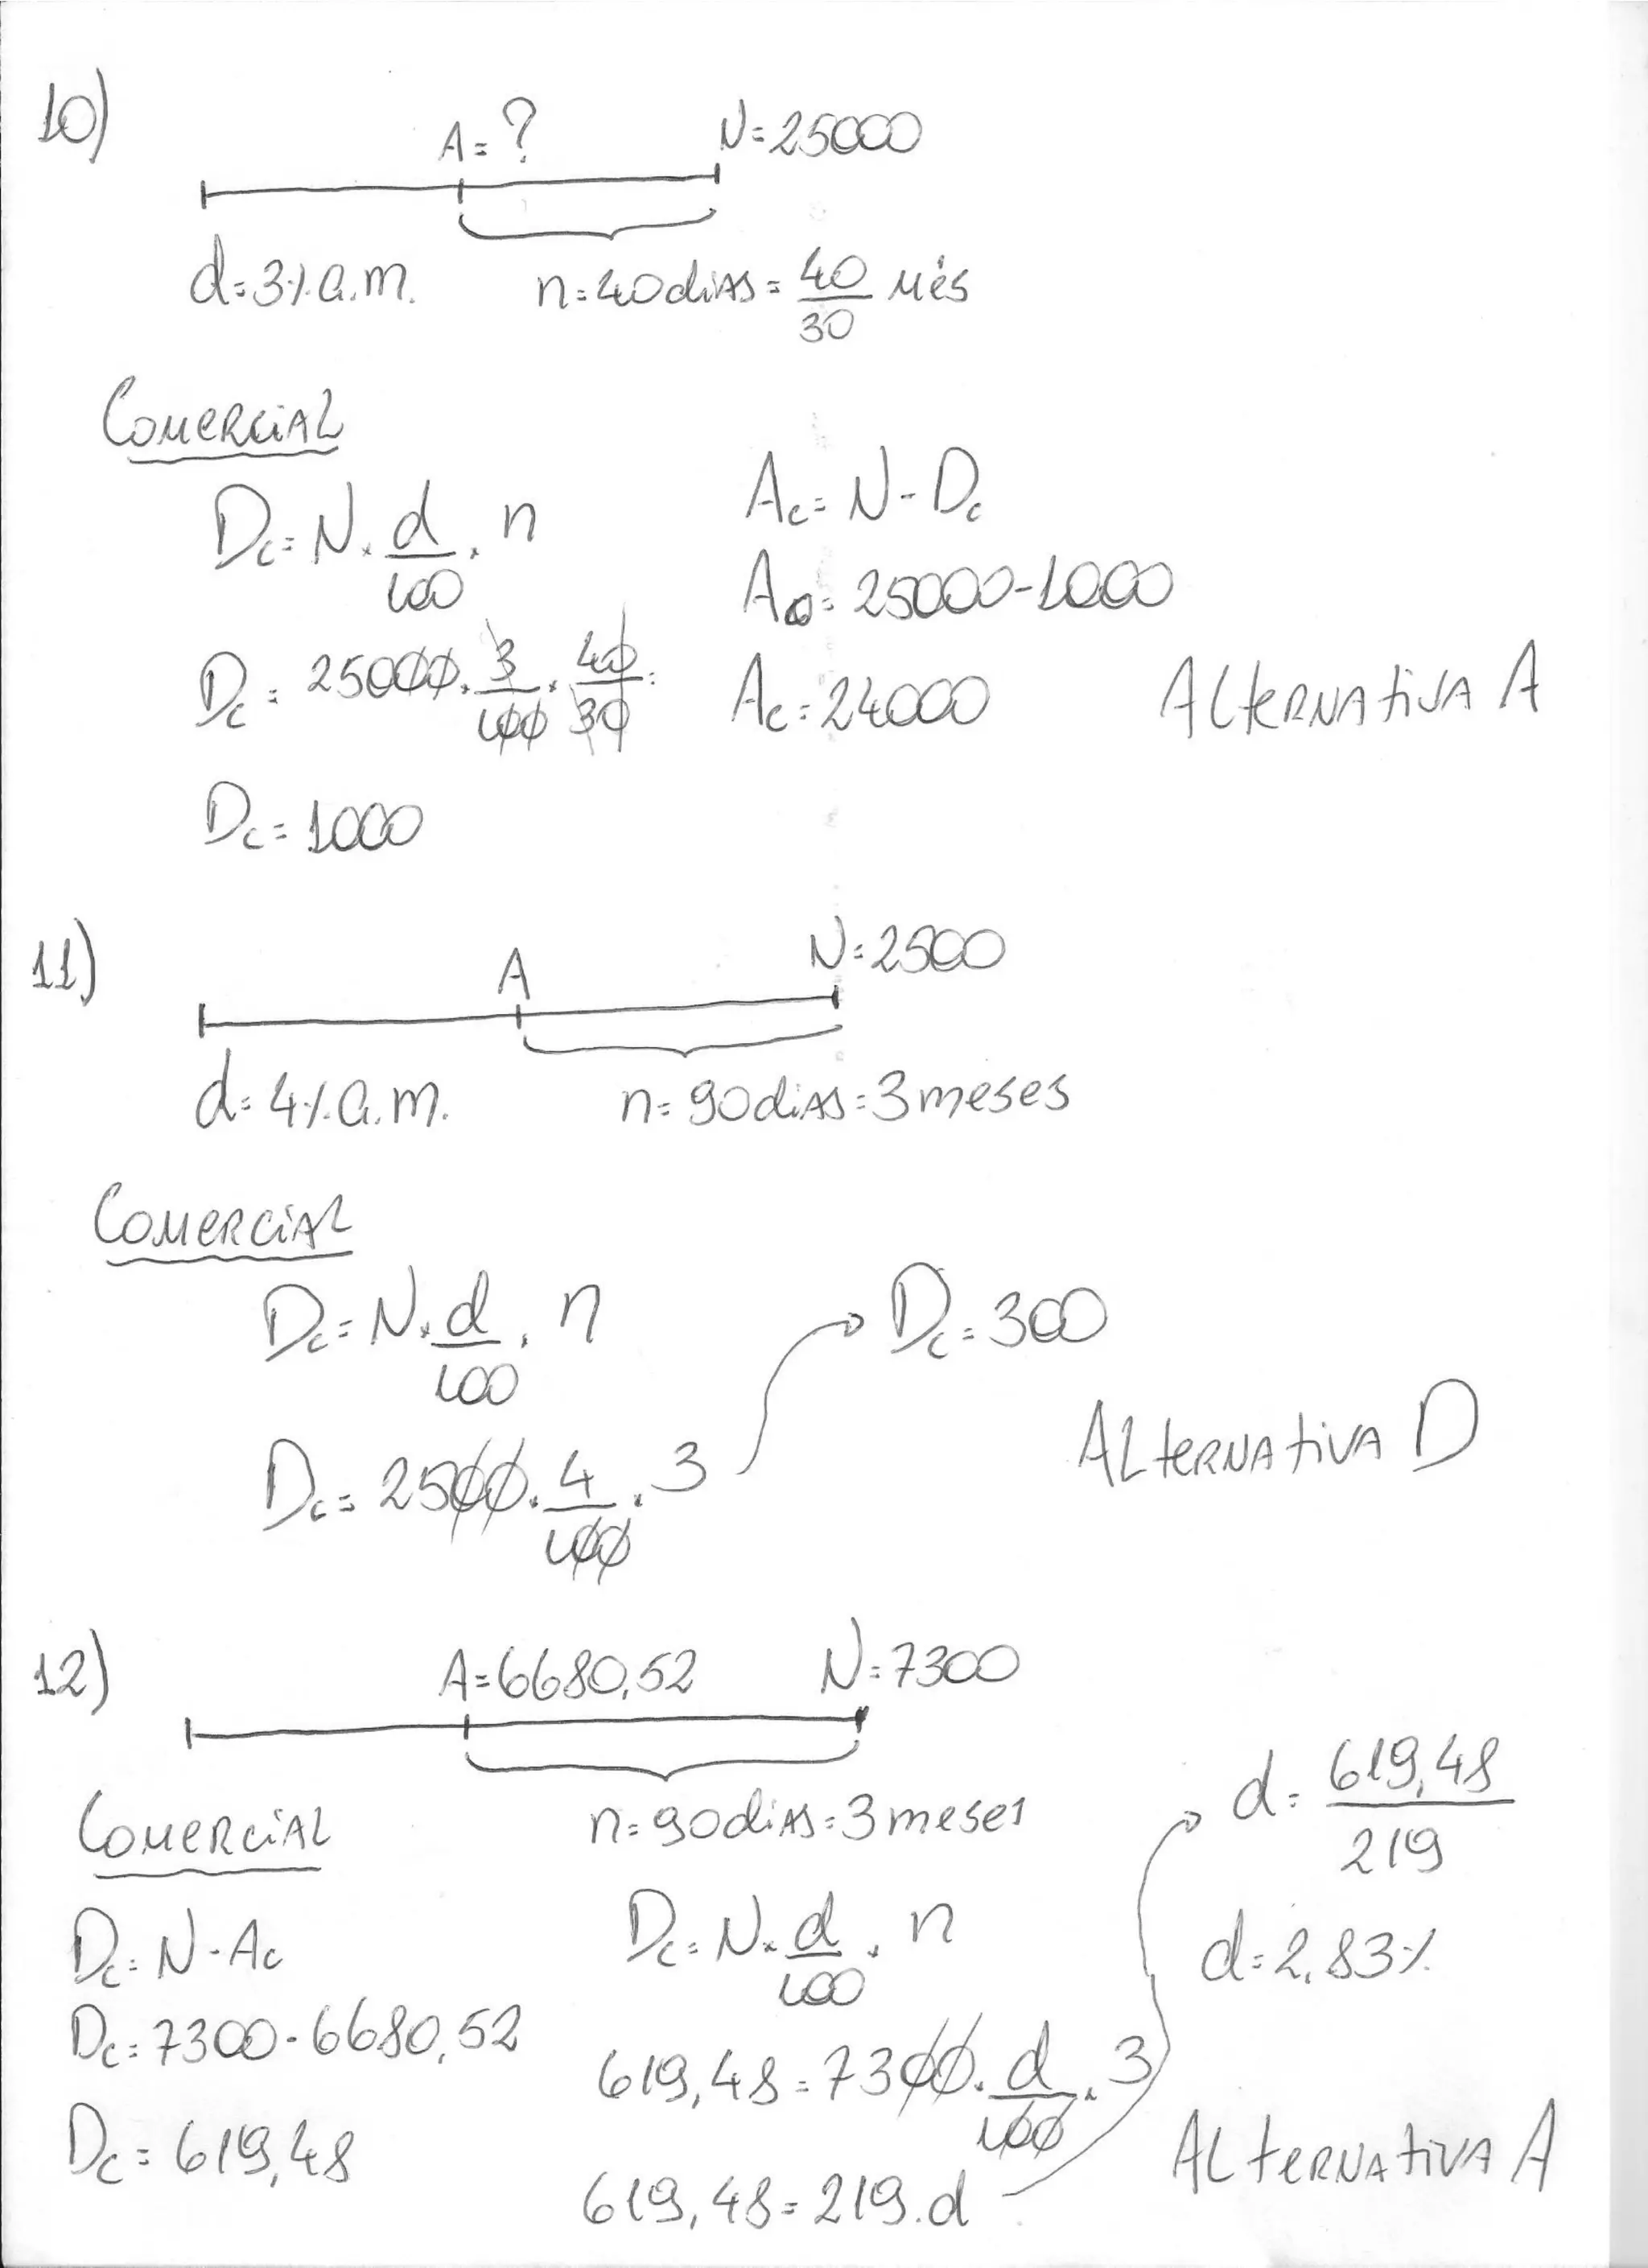 10)
A = ? N = 25000
d = 3% a.m. n = 40 dias = 40/30 mês
Comercial
Dc = N . d/100 . n
Dc = 25000 . 3/100 . 40/30 =
Dc = 1000
Ac = N - Dc
Ac = 25000 - 1000
Ac = 24000
Alternativa A
11)
A N = 2500
d = 4% a.m. n = 90 dias = 3 meses
Comercial
Dc = N . d/100 . n
Dc = 2500 . 4/100 . 3
Dc = 300
Alternativa D
12)
A = 6680,52 N = 7300
n = 90 dias = 3 meses
Comercial
Dc = N - Ac
Dc = 7300 - 6680,52
Dc = 619,48
Dc = N . d/100 . n
619,48 = 7300 . d/100 . 3
619,48 = 219 . d
d = 619,48/219
d = 2,83%
Alternativa A